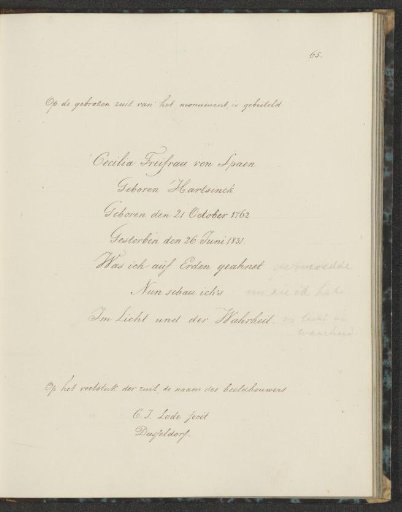 65.
Op de gebroken zuil van het monument, is gebeiteld
Cecilia Freifrau von Spaen
Geboren Hartsinck
Geboren den 21 October 1762
Gestorben den 26 Juni 1831
Was ich auf Erden geahnet
Nun schau ich's
Im Licht und der Wahrheit
Op het voetstuk der zuil, de naam des beeldhouwers
C. J. Lode fecit
Dusseldorf.